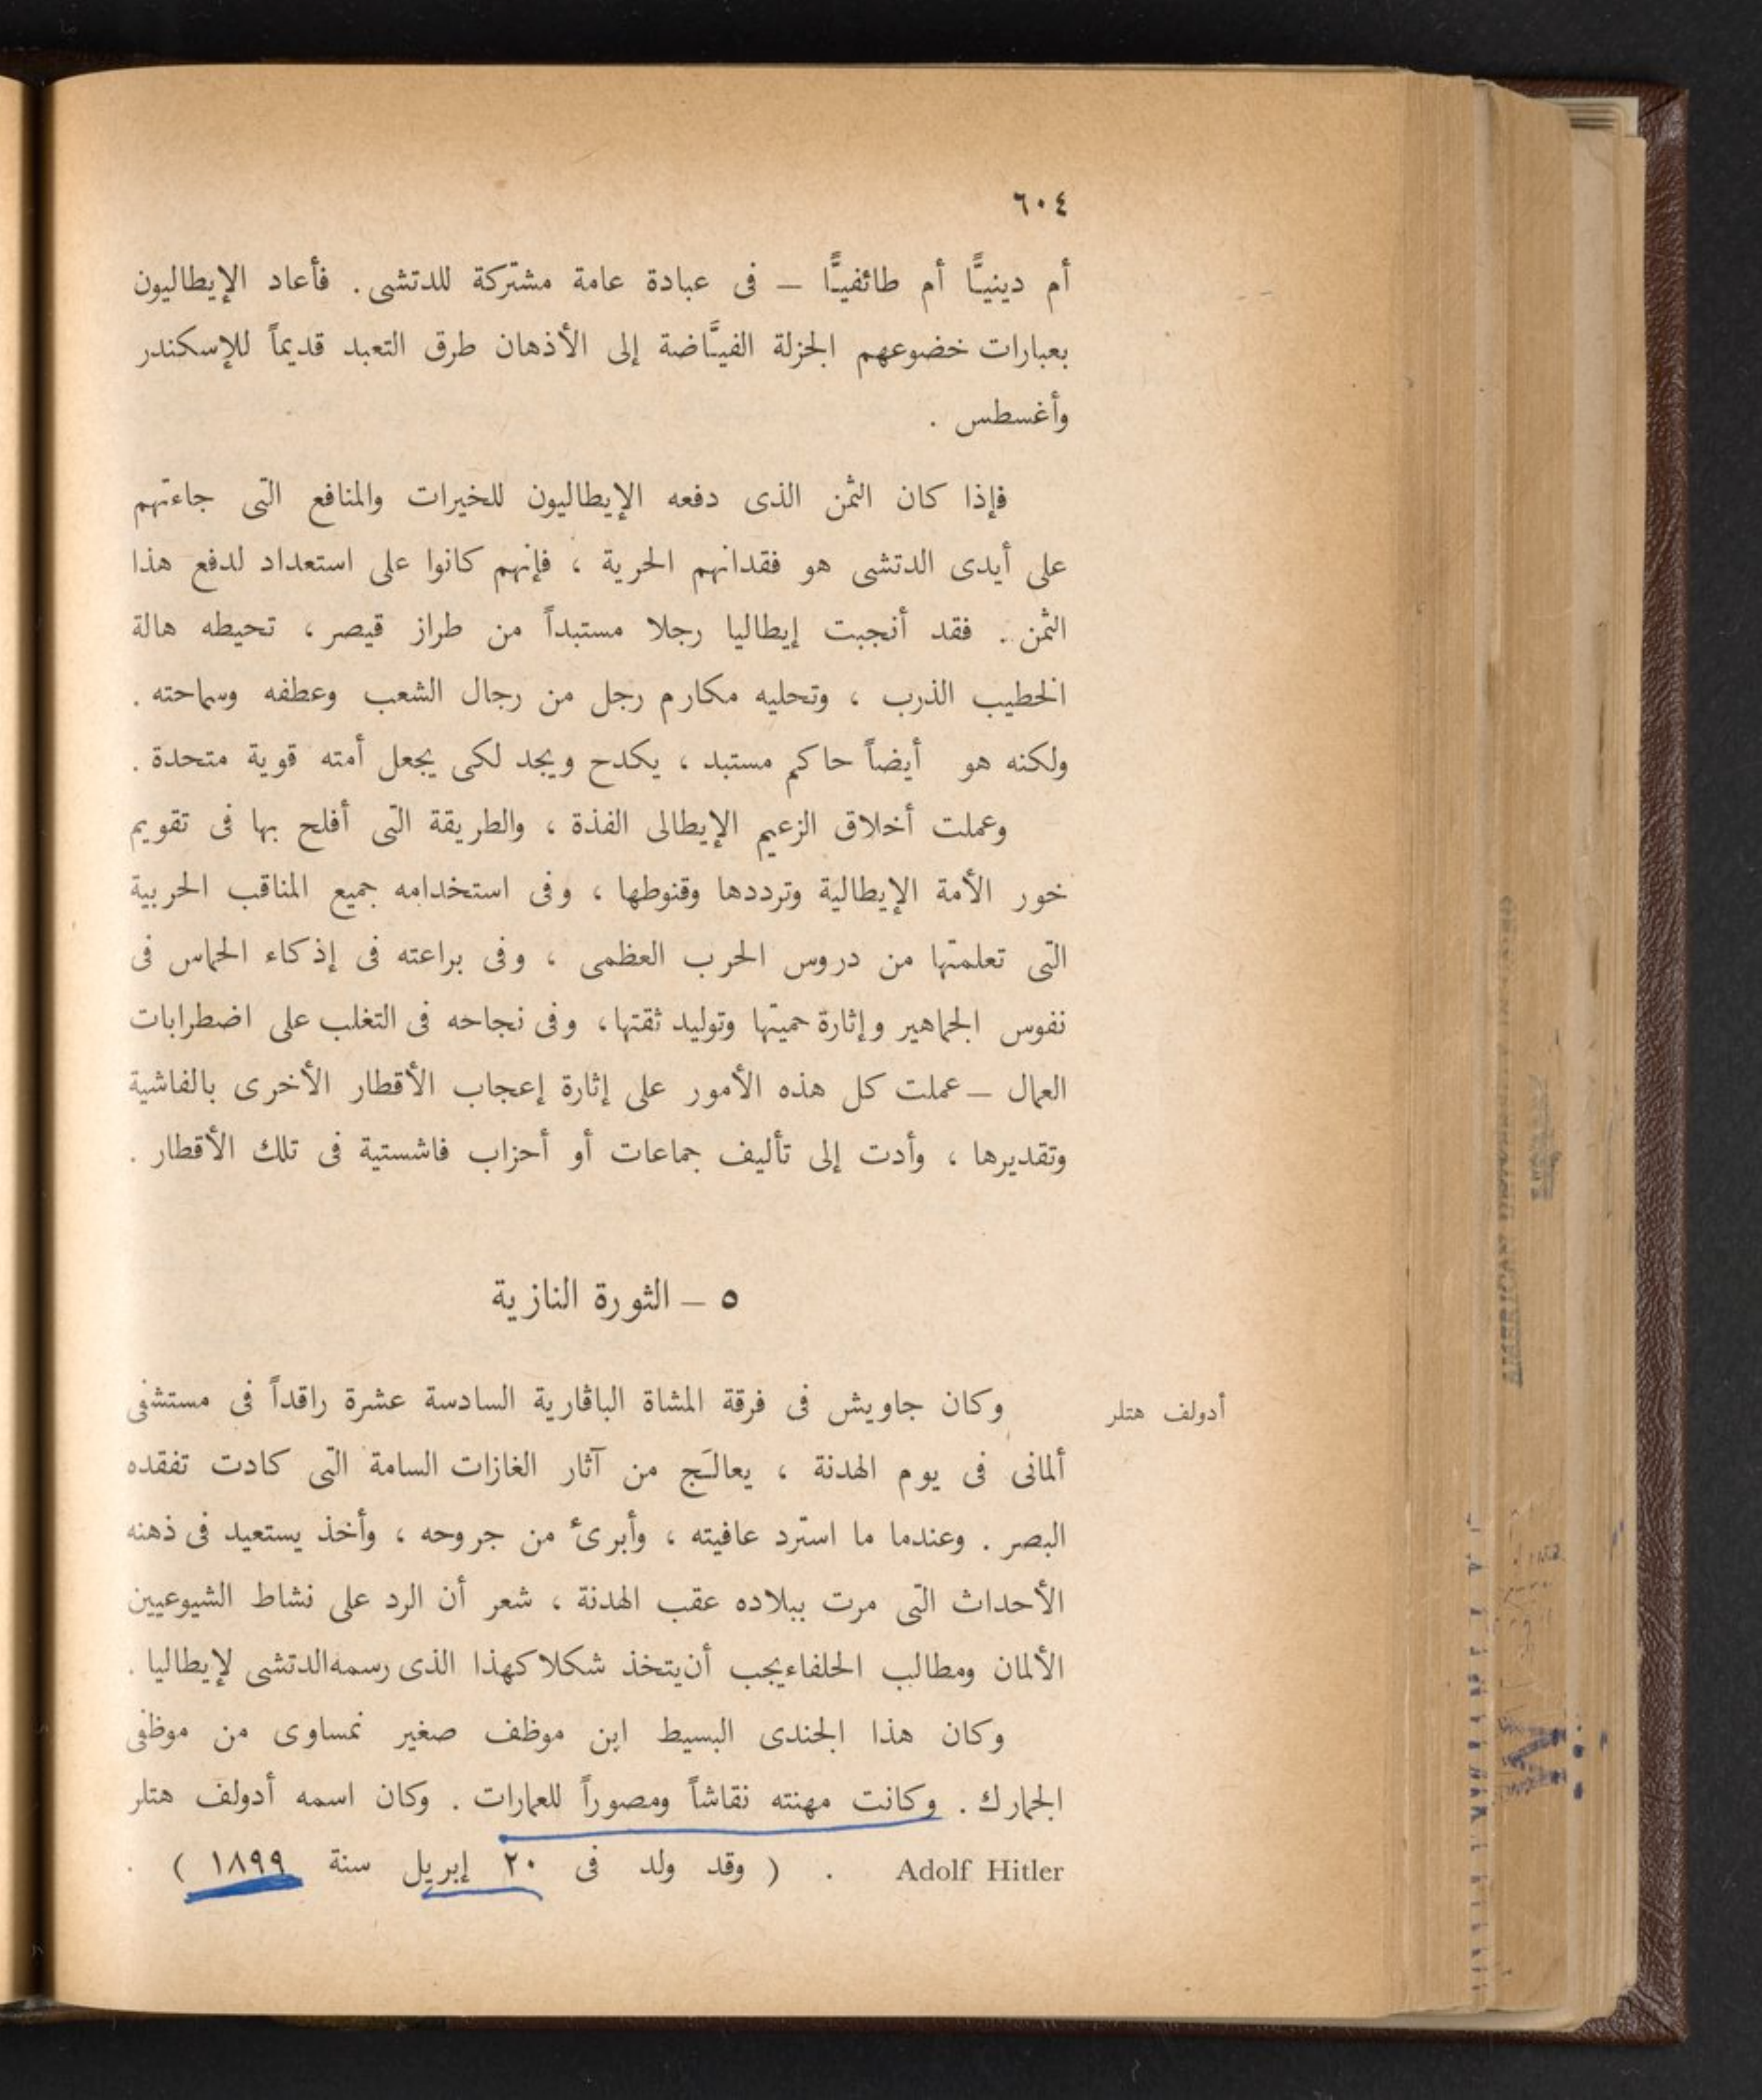 ٦٠٤
أم دينيًّا أم طائفيًّا – فى عبادة عامة مشتركة للدتشى . فأعاد الإيطاليون
بعبارات خضوعهم الجزلة الفيَّاضة إلى الأذهان طرق التعبد قديماً للإسكندر
وأغسطس .
فإذا كان الثمن الذى دفعه الإيطاليون للخيرات والمنافع التى جاءتهم
على أيدى الدتشى هو فقدانهم الحرية ، فإنهم كانوا على استعداد لدفع هذا
الثمن . فقد أنجبت إيطاليا رجلا مستبداً من طراز قيصر ، تحيطه هالة
الخطيب الذرب ، وتحليه مكارم رجل من رجال الشعب وعطفه وسماحته .
ولكنه هو أيضاً حاكم مستبد ، يكدح ويجد لكى يجعل أمته قوية متحدة .
وعملت أخلاق الزعيم الإيطالى الفذة ، والطريقة التى أفلح بها فى تقويم
خور الأمة الإيطالية وترددها وقنوطها ، وفى استخدامه جميع المناقب الحربية
التى تعلمتها من دروس الحرب العظمى ، وفى براعته فى إذكاء الحماس فى
نفوس الجماهير وإثارة حميتها وتوليد ثقتها ، وفى نجاحه فى التغلب على اضطرابات
العمال – عملت كل هذه الأمور على إثارة إعجاب الأقطار الأخرى بالفاشية
وتقديرها ، وأدت إلى تأليف جماعات أو أحزاب فاشستية فى تلك الأقطار .
٥ – الثورة النازية
أدولف هتلر
وكان جاويش فى فرقة المشاة الباڤارية السادسة عشرة راقداً فى مستشفى
ألمانى فى يوم الهدنة ، يعالَج من آثار الغازات السامة التى كادت تفقده
البصر . وعندما ما استرد عافيته ، وأبرئ من جروحه ، وأخذ يستعيد فى ذهنه
الأحداث التى مرت ببلاده عقب الهدنة ، شعر أن الرد على نشاط الشيوعيين
الألمان ومطالب الحلفاء يجب أن يتخذ شكلا كهذا الذى رسمه الدتشى لإيطاليا .
وكان هذا الجندى البسيط ابن موظف صغير نمساوى من موظفى
الجمارك . وكانت مهنته نقاشاً ومصوراً للعمارات . وكان اسمه أدولف هتلر
Adolf Hitler . ( وقد ولد فى ٢٠ إبريل سنة ١٨٩٩ ) .